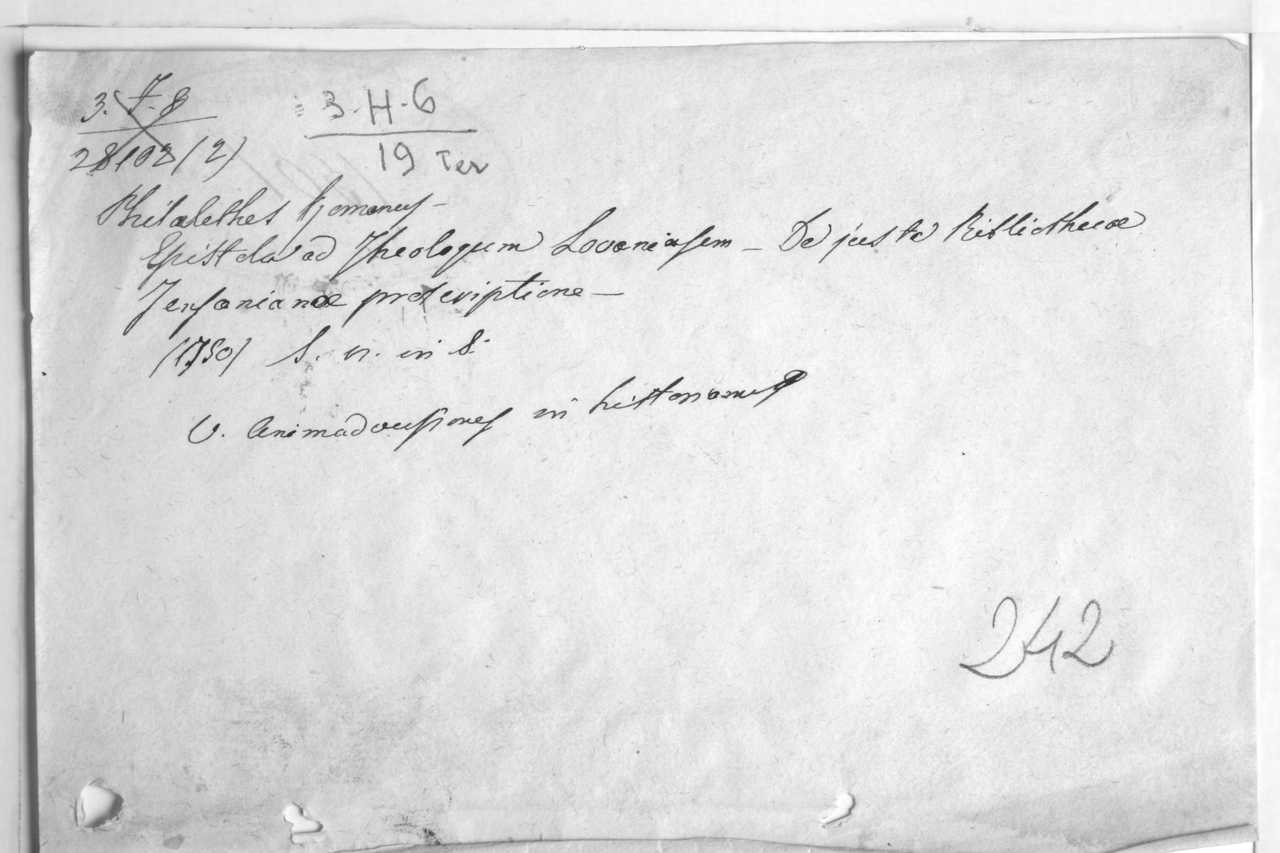 3. J. 8    3-H-6
28102 (2)    19 Ter
Philalethes Romanus -
Epistola ad Theologum Lovaniensem - De justa Bibliothecæ
Jensonianæ proscriptione -
(1750) S. n. in 8.
V. Animadversiones in historiam
242